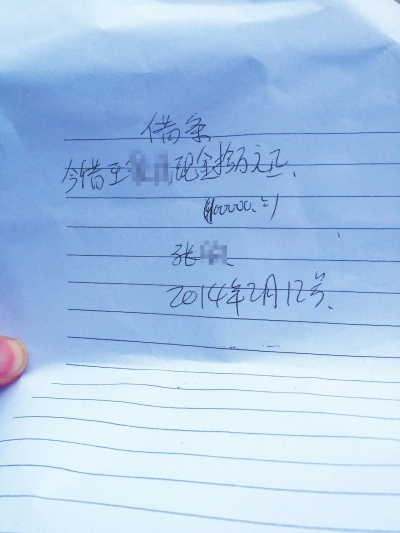 借条
今借至 现金拾万元正、
(100000.=)
张
2014年2月12号、